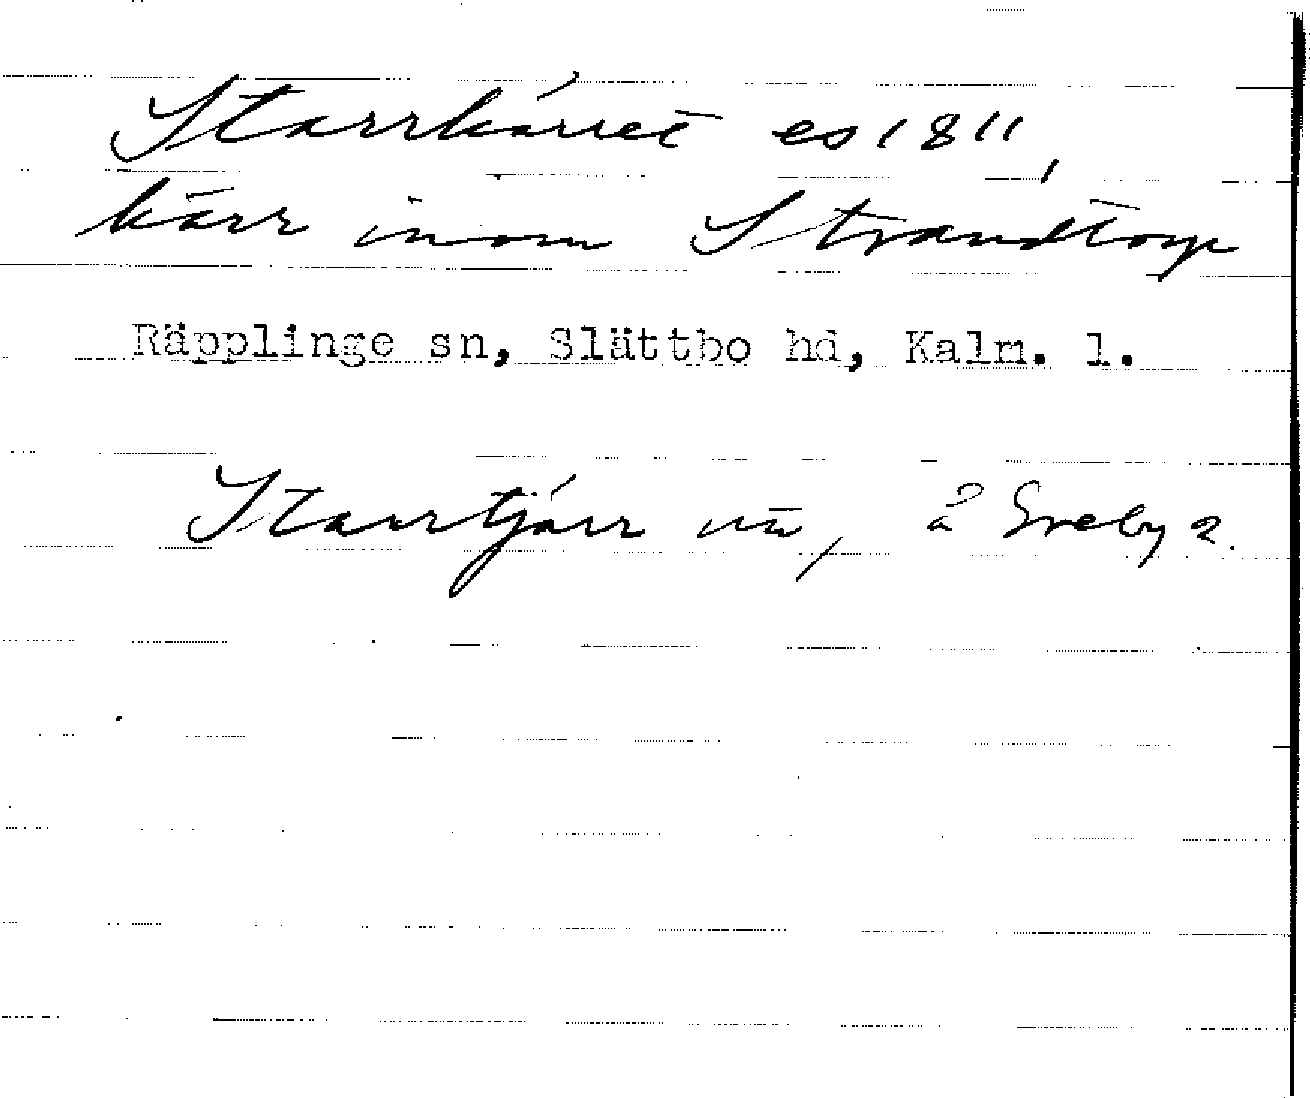 Starrkärret es 1811,
kärr inom Strandtorp
Räpplinge sn, Slättbo hd, Kalm. l.
Starrtjärr nu, å Greby 2.